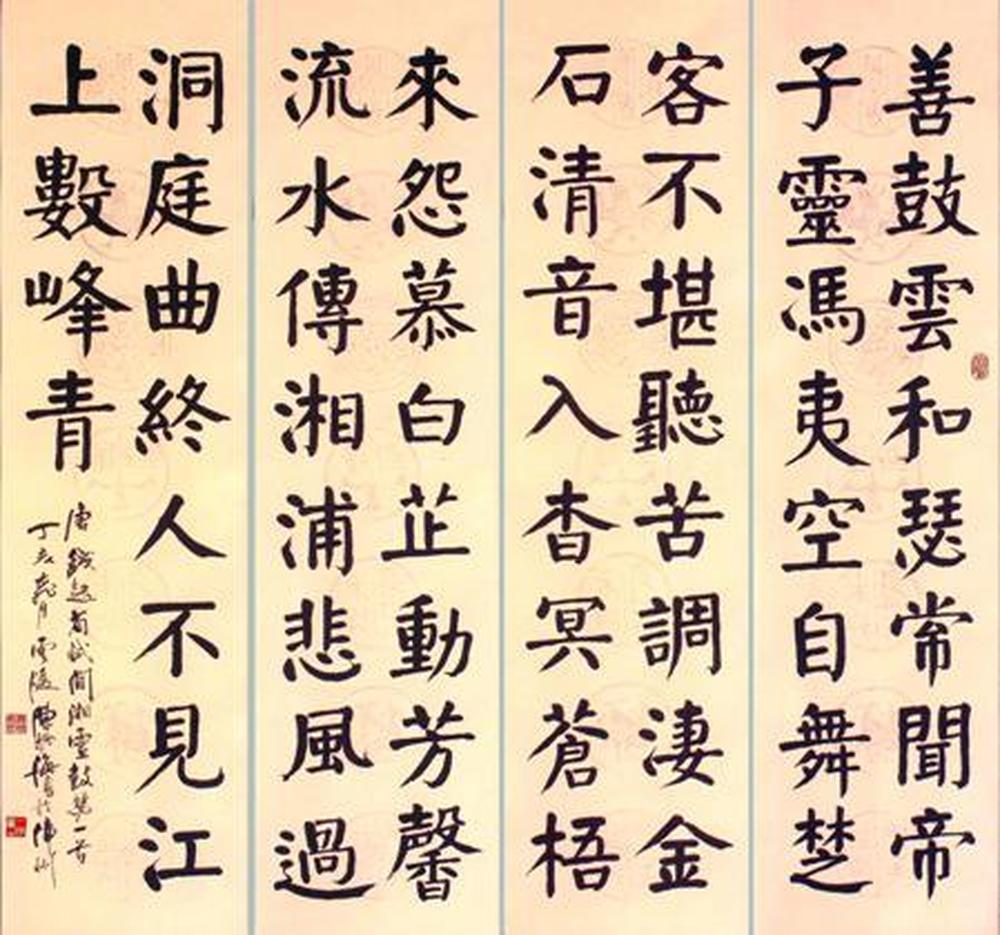 善鼓雲和瑟常聞帝
子靈馮夷空自舞楚
客不堪聽苦調淒金
石清音入杳冥蒼梧
來怨慕白芷動芳馨
流水傳湘浦悲風過
洞庭曲終人不見江
上數峰青
唐錢起省試聞湘靈鼓瑟一首
丁亥